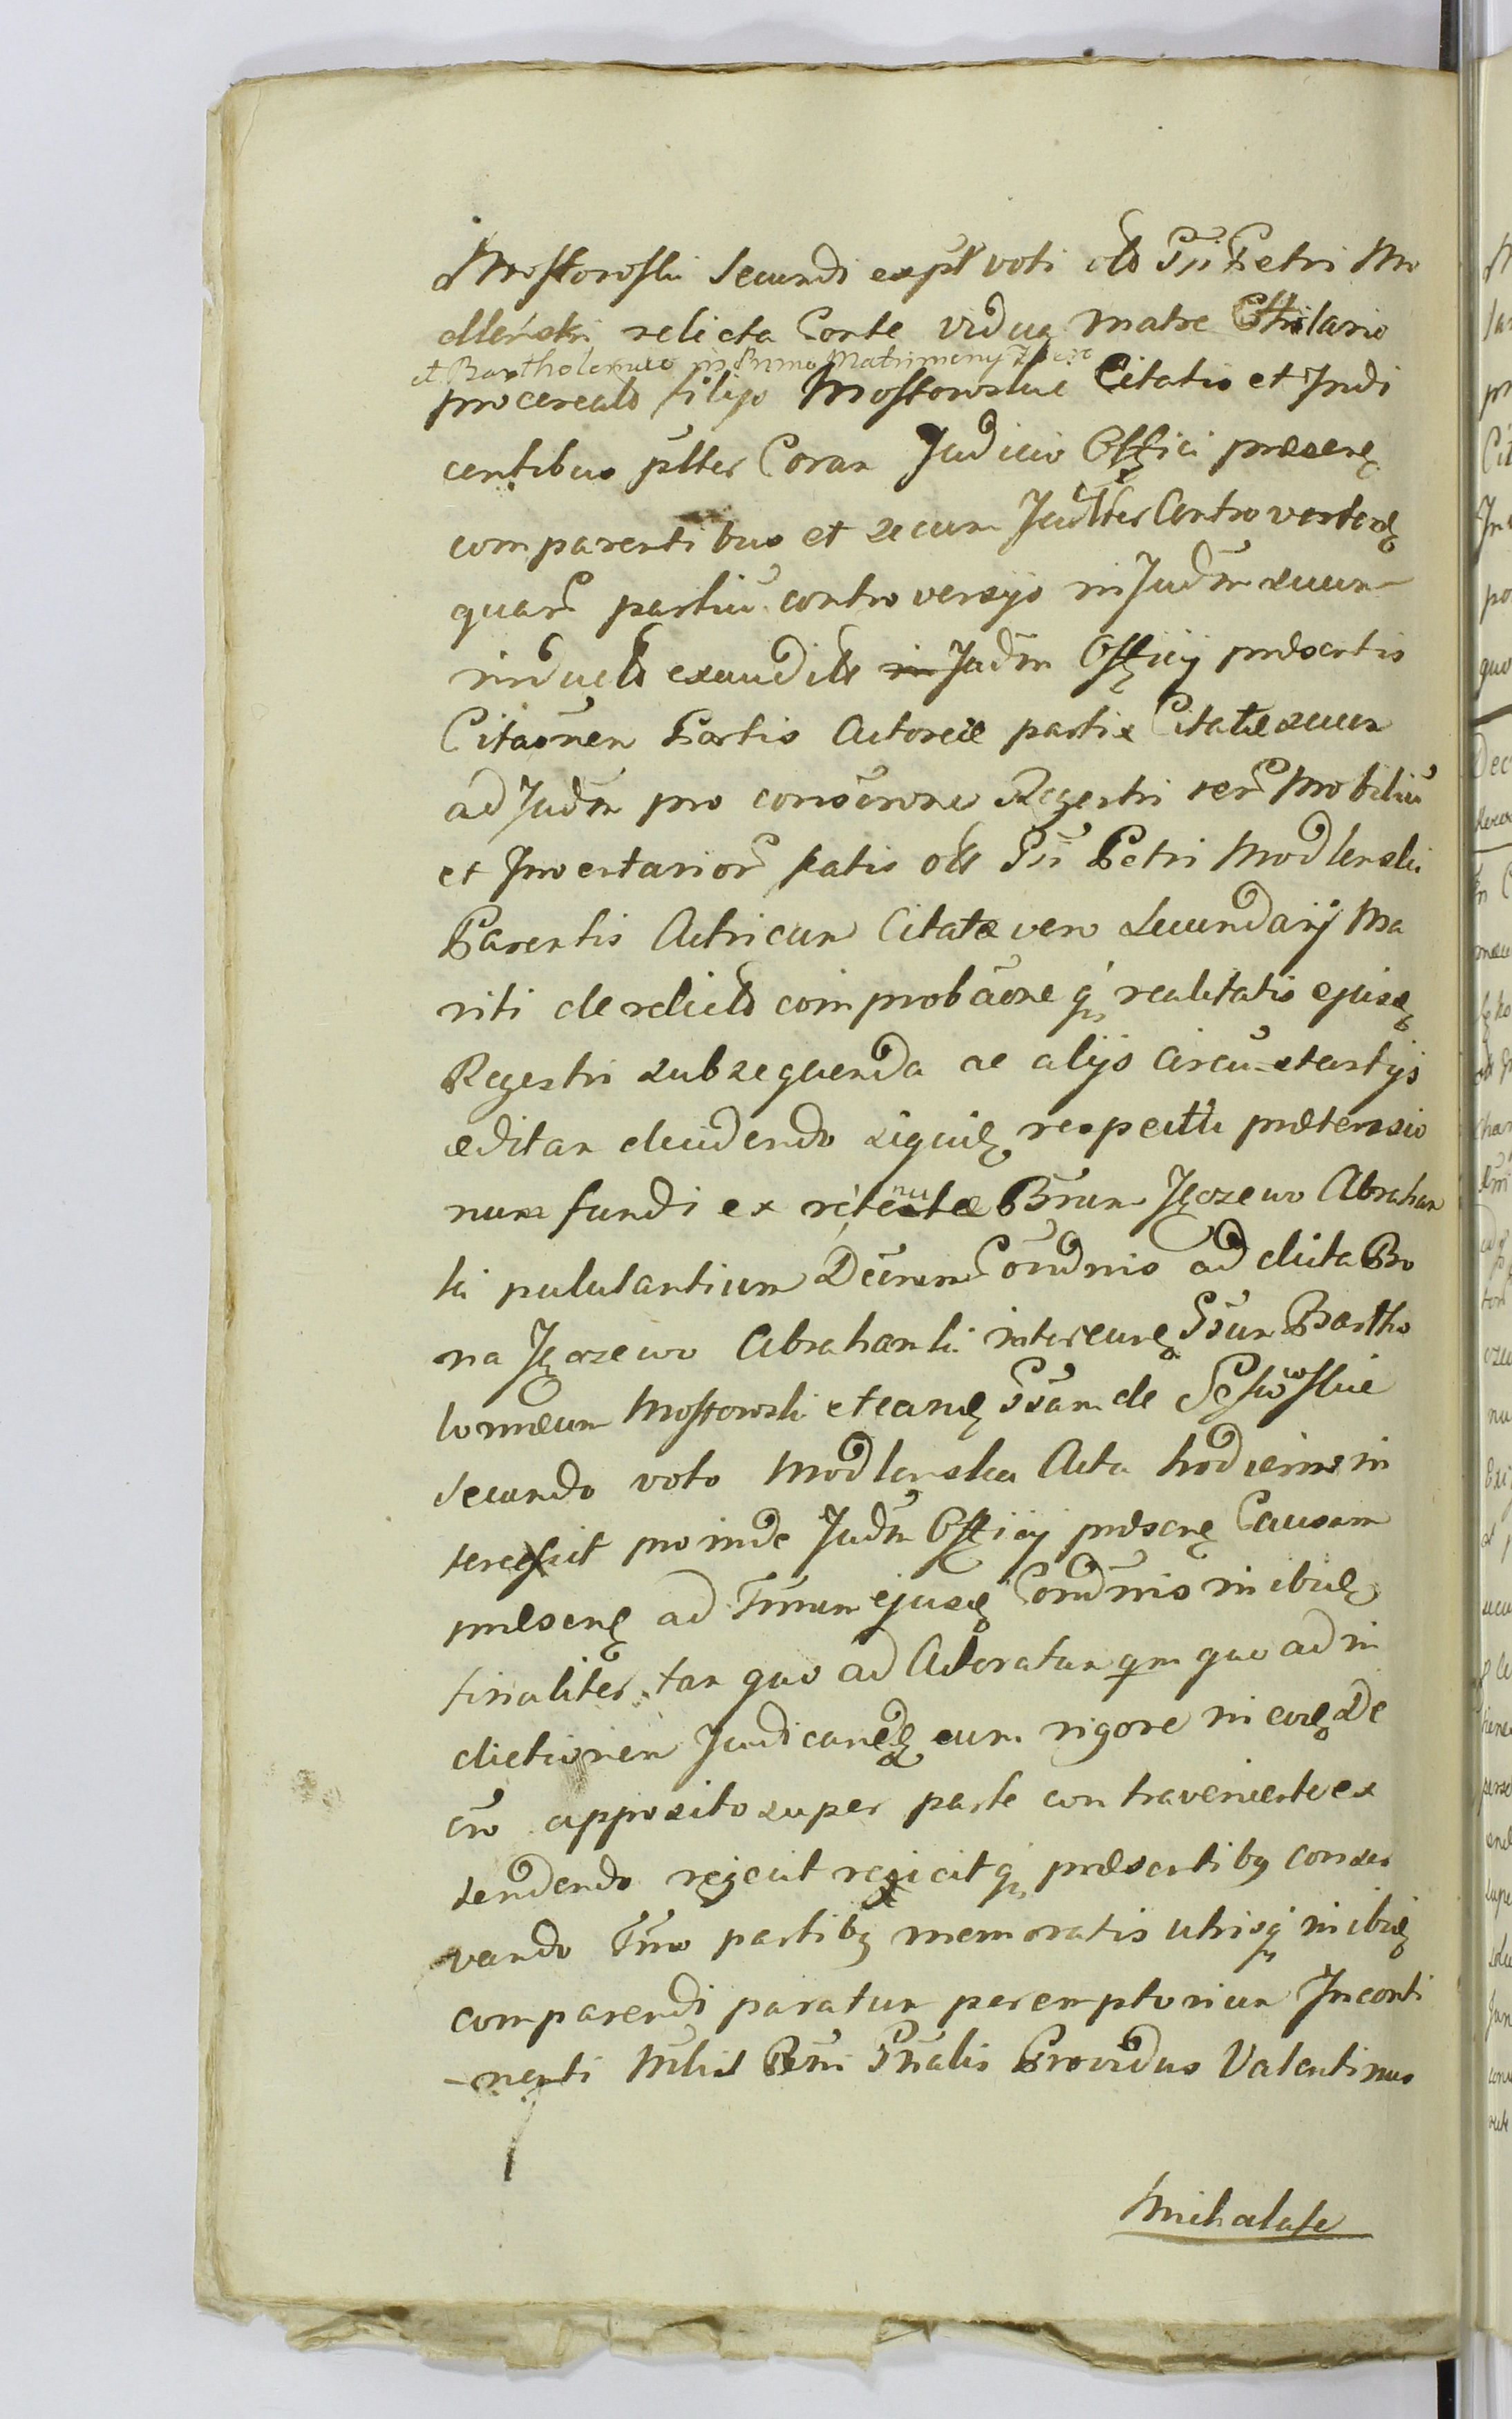 Mostowski Secundi expt voti olb Gsi Petri Mo
dleński relicta Conte vidua matre Hilario
et Bartholomeo in Primo Matrimony
procereatb filijs Mostowskie Citatis et Indi
centibus pltter Coram Judicio Offici præsenę
comparentibus et secum Judltter Controvertenę
quar partiu controversijs in Judm suum
inductb exauditb Judm Officij præsentis
Citaonem Partis Actoreæ partis Citatæ suum
ad Judm pro conserone Regestri rer Mobiliu
et Inventarior fatis olb Gsi Petri Modlenski
Parentis Actricum Citatæ vero Secundarij Ma
riti derelictb comprobaoneq realitatis ejusę
Regestri subsequenda ac alijs circu-stantijs
æditam cludendo siquię respectu prætensio
num fundi ex retentæ Bonum Jęozewo Abraham
ki pululantium Decrum Condnis ad dicta Bo
na Jęozewo Abrahamki intereunę Gsum Bartho
lomæum Mostowski et eanę Gsam de
secundo voto Modlenska Acta hodierno in
tercessit proinde Judm Officij præsenę Causam
præsenę ad Tmum ejusę Condnis in ibię
finaliter tam quo ad Actoratum qm quo ad in
dictionem Judicanę cum rigore in eoę De
cro apposito super parte contraveniente ex
tendendo rejecit rejicitq præsentiby conser
vando Tmo partiby memoratis utrisq in ibię
comparendi paratum peremptorium Inconti
-nenti Mlis Rni Gnalis Providus Valentinus
Michalase